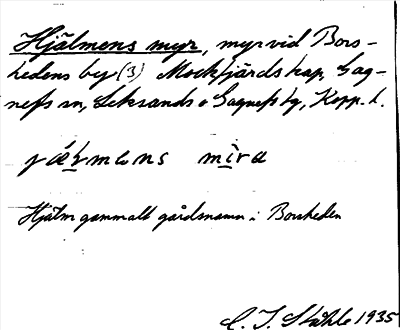 Hjälmens myr, myr vid Bors-
hedens by (3) Mockfjärds kap, Gag-
nefs sn, Leksands o Gagnefs tg, Kopp. l.
mi̲ra
Hjälm gammalt gårdsnamn i Borsheden
C. I. Ståhle 1935